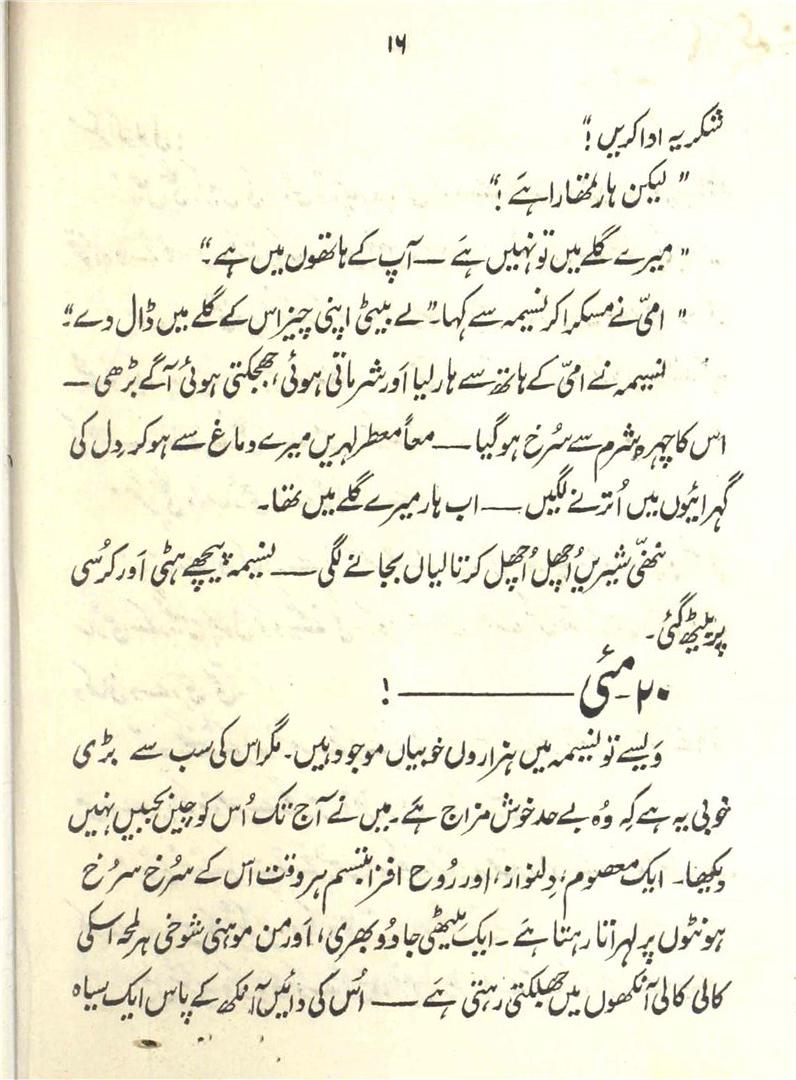 ۱۶
شکریہ ادا کریں!“
”لیکن ہار تمھارا ہے!“
”میرے گلے میں تو نہیں ہے — آپ کے ہاتھوں میں ہے۔“
”امّی نے مسکرا کر نسیمہ سے کہا۔”لے بیٹی اپنی چیز اس کے گلے میں ڈال دے“۔
نسیمہ نے امّی کے ہاتھ سے ہار لیا اَور شرماتی ہوئی، جھجکتی ہوئی آگے بڑھی —
اس کا چہرہ شرم سے سُرخ ہو گیا — معاً معطر لہریں میرے دماغ سے ہو کر دِل کی
گہرائیوں میں اُترنے لگیں — اب ہار میرے گلے میں تھا۔
ننھّی شیریں اُچھل اُچھل کر تالیاں بجانے لگی — نسیمہ پیچھے ہٹی اَور کرُسی
پر بیٹھ گئی۔
۲۰۔ مئی —————— !
وَیسے تو نسیمہ میں ہزاروں خوبیاں موجود ہیں۔ مگر اس کی سب سے بڑی
خوبی یہ ہے کہِ وُہ بے حد خوش مزاج ہَے۔ میں نے آج تک اُس کو چیں بجبیں نہیں
دیکھا۔ ایک معصوم، دِلنواز، اور رُوح افزا تبسّم ہر وقت اُس کے سُرخ سُرخ
ہونٹوں پر لہراتا رہتا ہَے۔ ایک مِیٹھی جادُو بھری، اَور من موہنی شوخی ہر لمحہ اسکی
کالی کالی آنکھوں میں جھلکتی رہتی ہَے — اُس کی دائیں آنکھ کے پاس ایک سیاہ